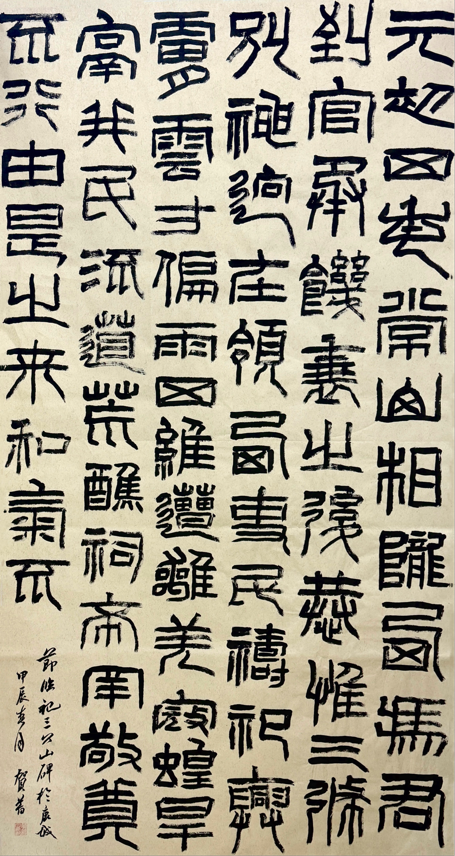 元初四年常山相隴西馮君
到官承饑衰之後惟三條
別神迥在領西吏民禱祀興
雲寸偏雨四維遭離羌寇蝗旱
鬲我民流道荒醮祠希罕敬奠
不行由是之來和氣不
節臨祀三公山碑於城
甲辰春月賀